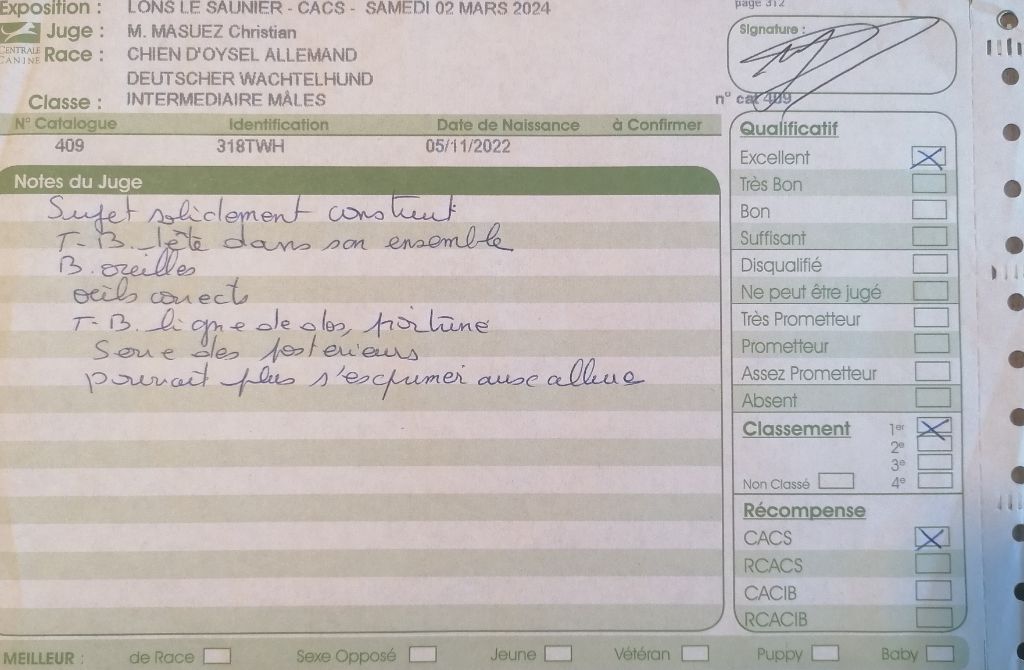 Exposition : LONS LE SAUNIER - CACS - SAMEDI 02 MARS 2024
page 312
CENTRALE CANINE
Juge : M. MASUEZ Christian
Race : CHIEN D'OYSEL ALLEMAND
DEUTSCHER WACHTELHUND
Classe : INTERMEDIAIRE MÂLES
Signature :
n° cat 409
N° Catalogue Identification Date de Naissance à Confirmer
409 318TWH 05/11/2022
Notes du Juge
Sujet solidement construit
T-B. tête dans son ensemble
B. oreilles
oeils corrects
T-B. ligne de dos, poitrine
Serre des posterieurs
pourrait plus s'exprimer aux allure
Qualificatif
Excellent
Très Bon
Bon
Suffisant
Disqualifié
Ne peut être jugé
Très Prometteur
Prometteur
Assez Prometteur
Absent
Classement 1er
2e
3e
Non Classé 4e
Récompense
CACS
RCACS
CACIB
RCACIB
MEILLEUR : de Race Sexe Opposé Jeune Vétéran Puppy Baby